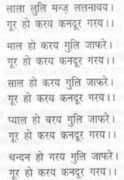 लाला लुलि मन्ज़ ललनावय।
गूर हो करय कनदूर गरय।।
माल हो करय गुलि जाफरे।
गूर हो करय कनदूर गरय।।
साल हो करय गुलि जाफरे।
गूर हो करय कनदूर गरय।।
प्याल हो बरय गुलि जाफरे।
गूर हो करय कनदूर गरय।।
चन्दन हो गरय गुलि जाफरे।
गूर हो करय कनदूर गरय।।